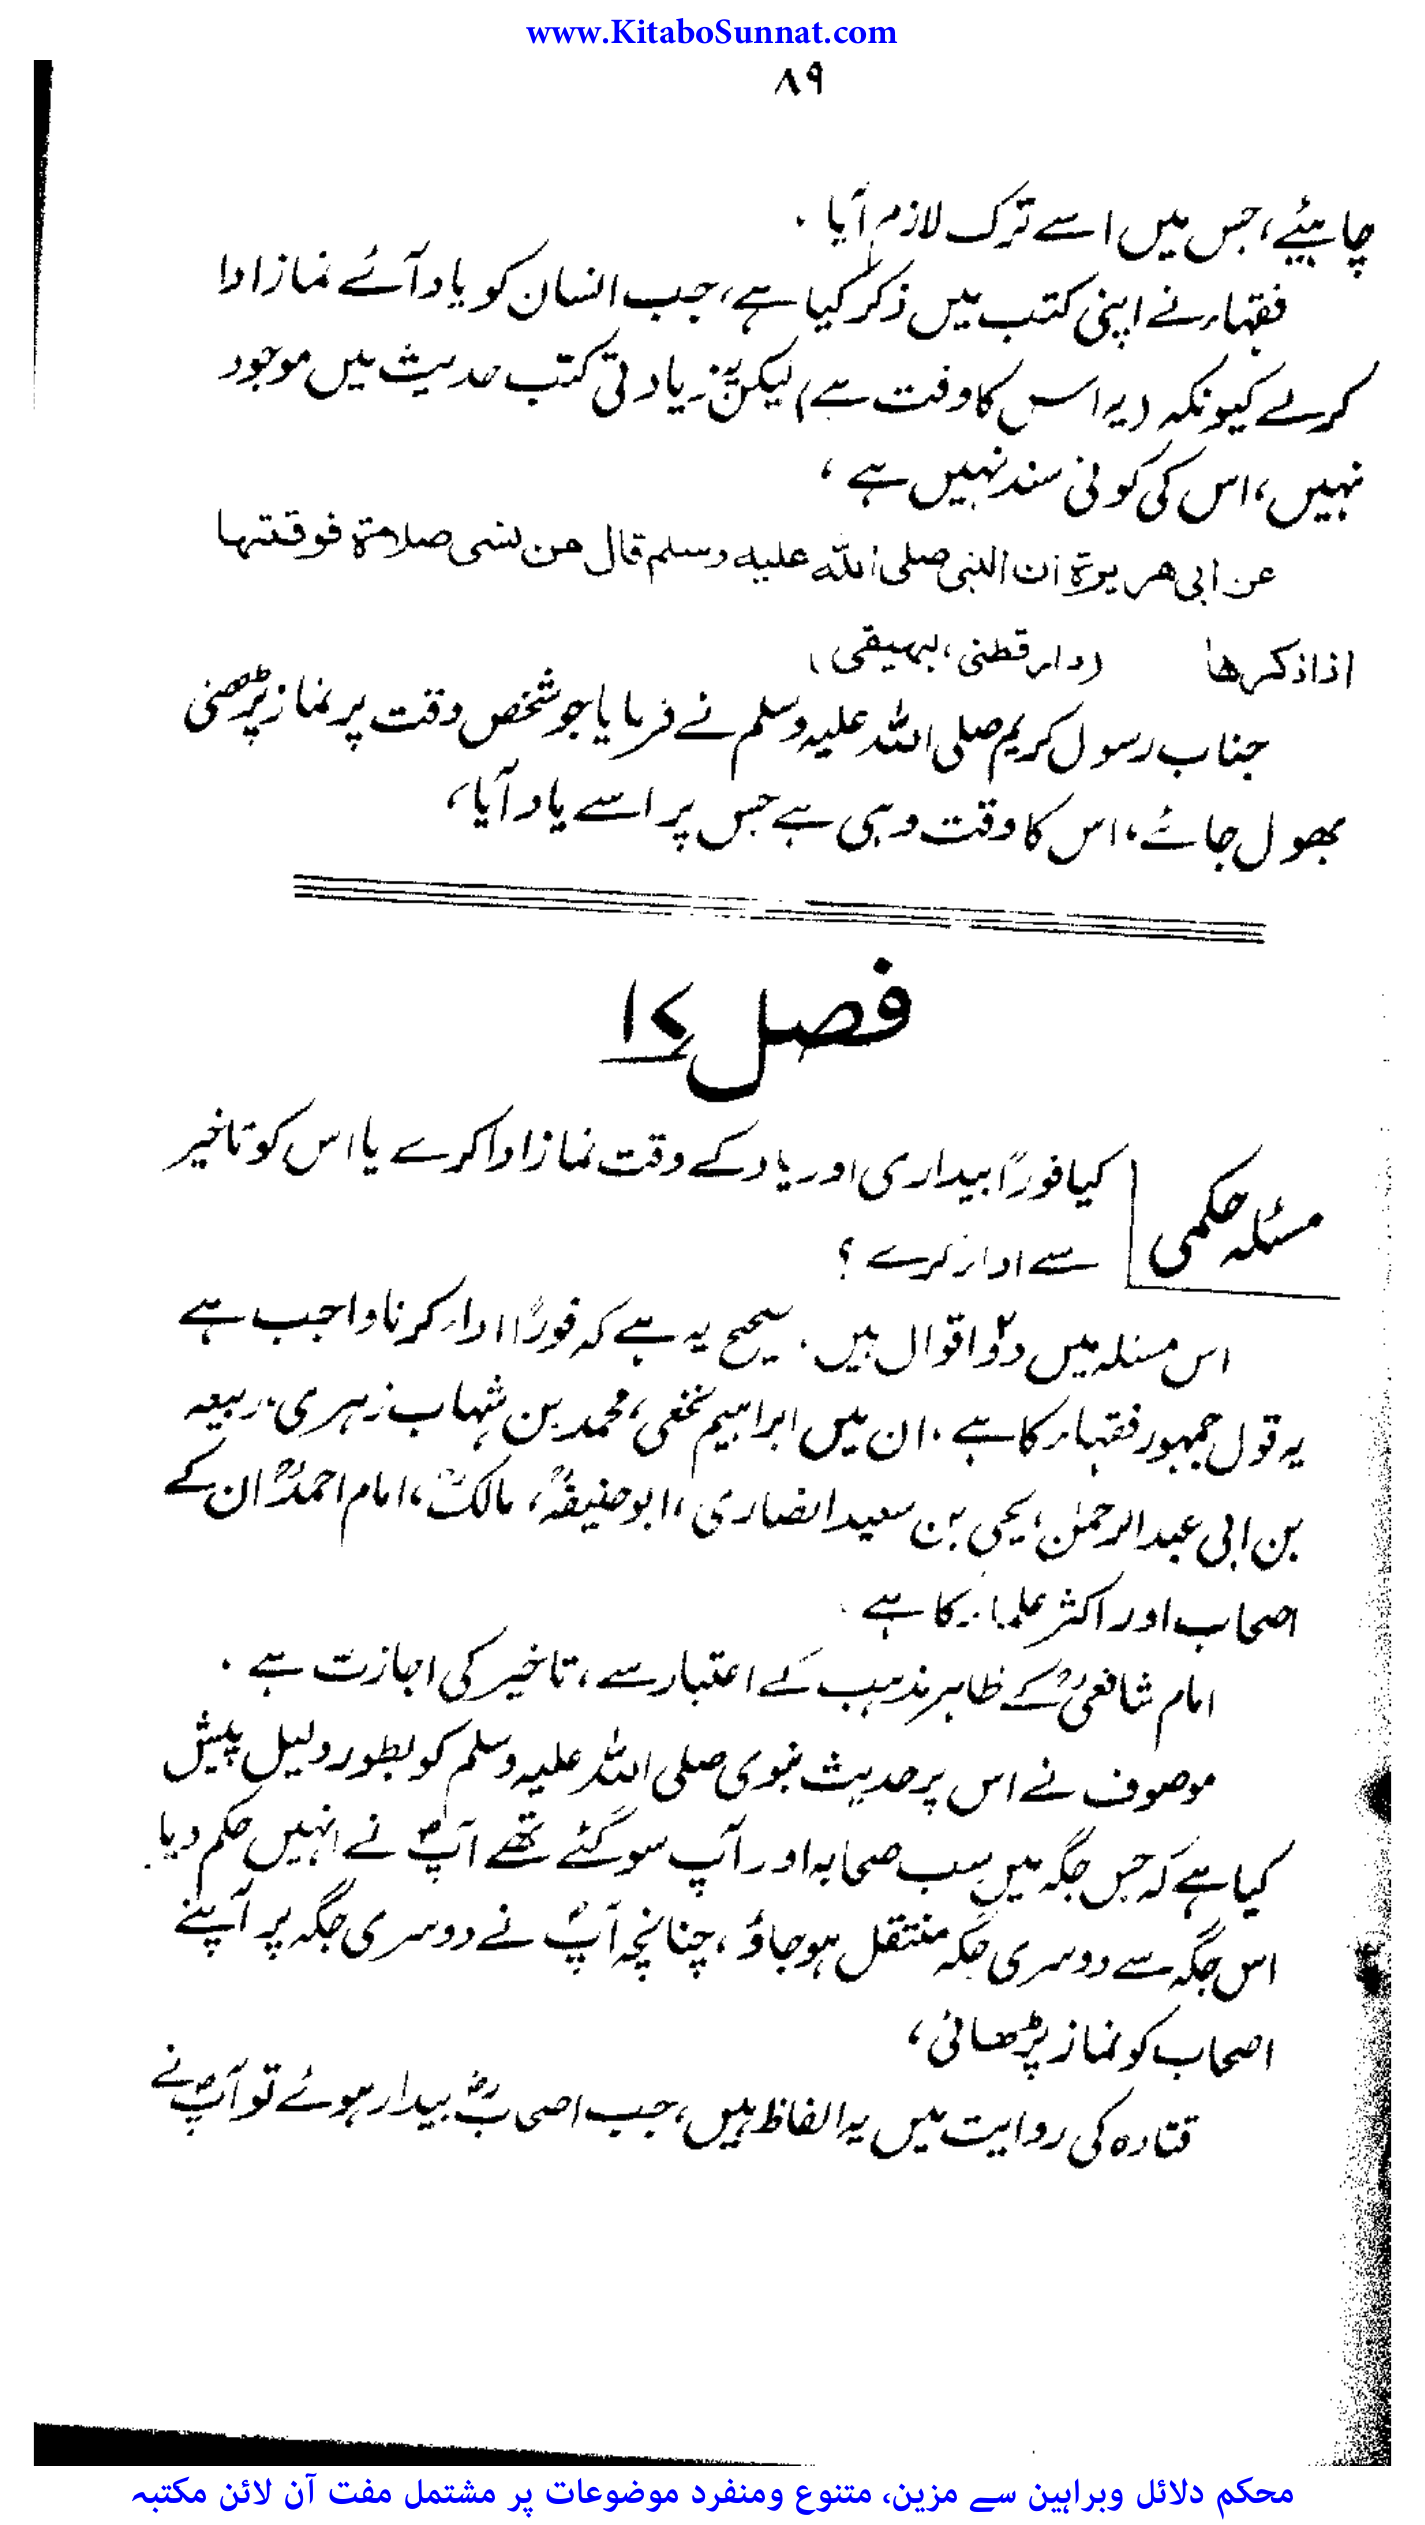 www.KitaboSunnat.com
۸۹
چاہیئے، جس میں اسے ترک لازم آیا۔
فقہاء نے اپنی کتب میں ذکر کیا ہے، جب انسان کو یاد آئے نماز ادا
کرلے کیونکہ (یہ اس کا وقت ہے) لیکن یہ زیادتی کتب حدیث میں موجود
نہیں، اس کی کوئی سند نہیں ہے،
عن ابی ھریرۃ ان النبی صلی اللہ علیہ وسلم قال من نسی صلاۃ فوقتہا
اذا ذکرھا (دار قطنی، بیہقی)
جناب رسول کریم صلی اللہ علیہ وسلم نے فرمایا جو شخص وقت پر نماز پڑھنی
بھول جائے، اس کا وقت وہی ہے جس پر اسے یاد آیا،
فصل ۱۷
مسئلہ حکمی
کیا فوراً بیداری اور یاد کے وقت نماز ادا کرے یا اس کو تاخیر
سے ادا کرے؟
اس مسئلہ میں دو۲ اقوال ہیں۔ صحیح یہ ہے کہ فوراً ادا کرنا واجب ہے
یہ قول جمہور فقہاء کا ہے۔ ان میں ابراہیم نخعی، محمد بن شہاب زہری، ربیعہ
بن ابی عبدالرحمٰن، یحیی بن سعید انصاری، ابو حنیفہؒ، مالکؒ، امام احمدؒ ان کے
اصحاب اور اکثر علماء کا ہے۔
امام شافعیؒ کے ظاہر مذہب کے اعتبار سے، تاخیر کی اجازت ہے۔
موصوف نے اس پر حدیث نبوی صلی اللہ علیہ وسلم کو بطور دلیل پیش
کیا ہے کہ جس جگہ میں سب صحابہ اور آپ سو گئے تھے آپؐ نے انہیں حکم دیا۔
اس جگہ سے دوسری جگہ منتقل ہو جاؤ، چنانچہ آپؐ نے دوسری جگہ پر آپنے
اصحاب کو نماز پڑھائی،
قتادہ کی روایت میں یہ الفاظ ہیں، جب اصحابؓ بیدار ہوئے تو آپؐ نے
محکم دلائل وبراہین سے مزین، متنوع ومنفرد موضوعات پر مشتمل مفت آن لائن مکتبہ